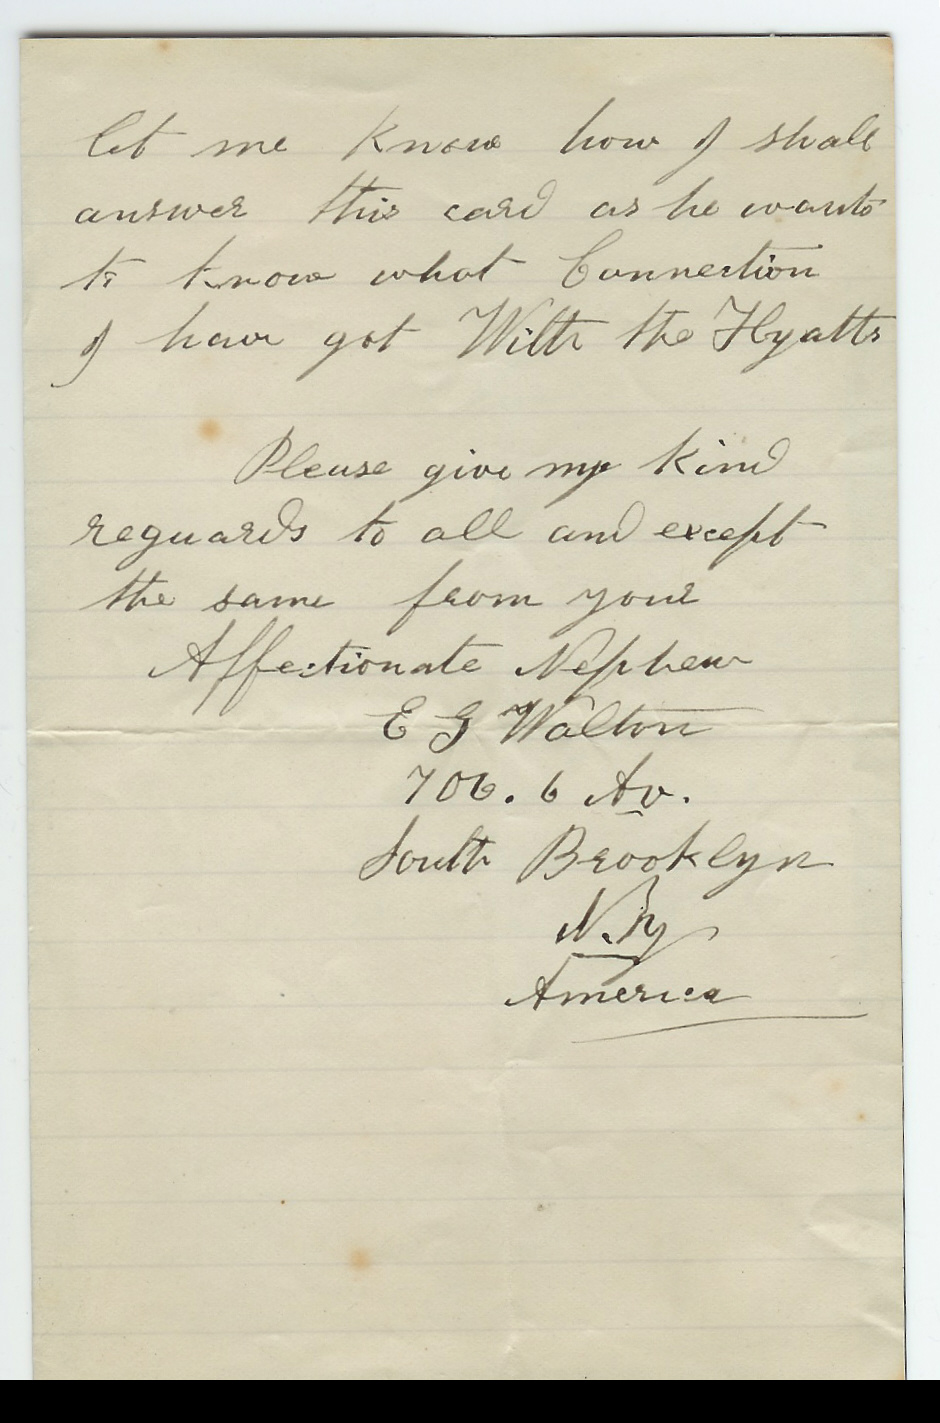 let me know how I shall
answer this card as he wants
to know what Connection
I have got With the Hyatts
Please give my kind
reguards to all and except
the same from your
Affectionate Nephew
E G Walton
706. 6 Av.
South Brooklyn
N.Y
America